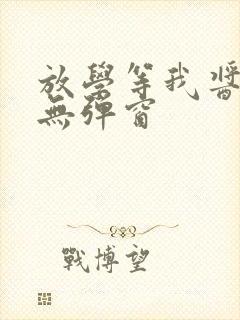 放學等我 醬
無彈窗
戰博望